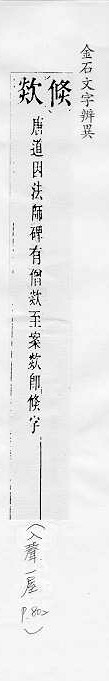 金石文字辨異
倏
欻
唐道因法師碑有僧欻至案欻即倏字
(入聲一屋 P.802)